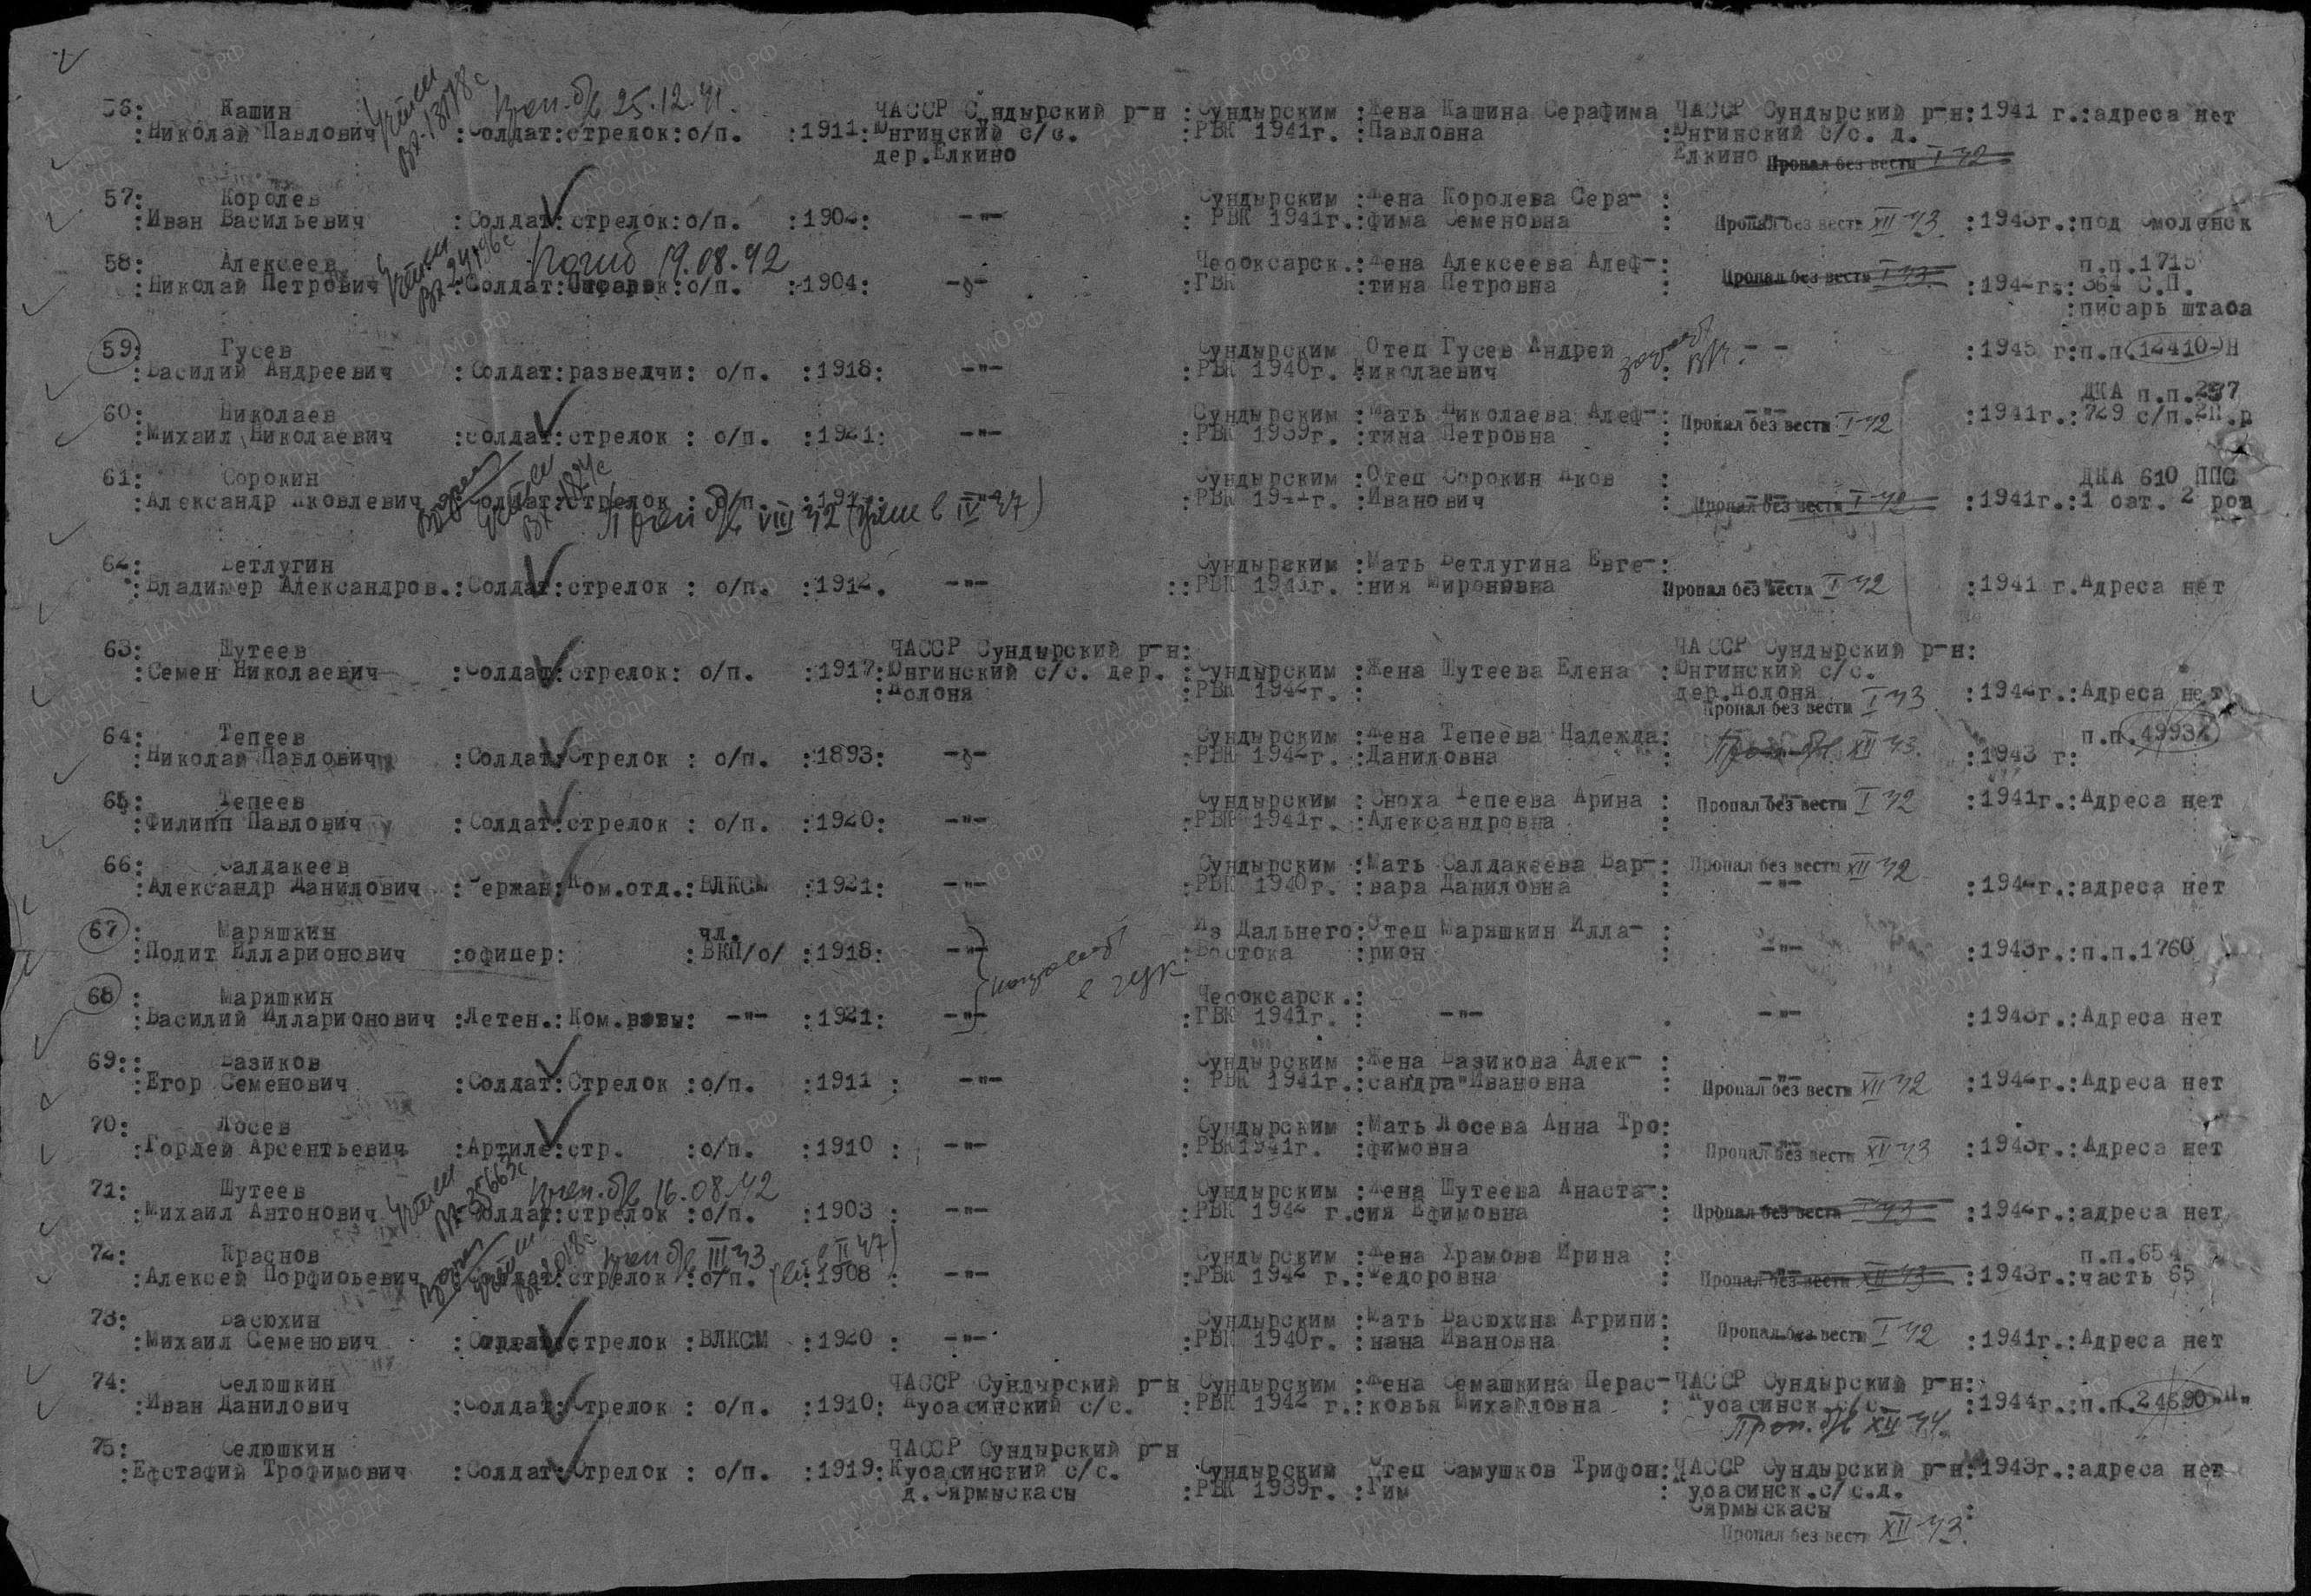 56: Кашин Проп. б/в 25.12.41. ЧАССР Сундырский р-н : Сундырским : Жена Кашина Серафима ЧАССР Сундырский р-н: 1941 г.: адреса нет
:Николай Павлович :Солдат:стрелок:о/п. :1911: Юнгинский с/с. :РВК 1941г. :Павловна :Юнгинский с/с. д.
дер.Елкино Елкино Пропал без вести I-42
57: Королев Сундырским :Жена Королева Сера- :
:Иван Васильевич :Солдат:стрелок:о/п. :190 : -"- : РВК 1941г.:фима Семеновна : Пропал без вести XII-43 :1943г.:под Смоленск
58: Алексеев Погиб 19.08.42 Чебоксарск.:Жена Алексеева Алеф-: Пропал без вести I-43 п.п.1715
:Николай Петрович :Солдат: :о/п. :1904: -"- :ГВК :тина Петровна : :1942г.: 364 С.П.
:писарь штаба
59: Гусев Сундырским Отец Гусев Андрей -"- :1945 г:п.п.12410-Н
:Василий Андреевич :Солдат:разведчи: о/п. :1918: -"- :РВК 1940г. Николаевич :
ДКА п.п.297
60: Николаев Сундырским :Мать Николаева Алеф-: Пропал без вести I-42 :1941г.: 729 с/п.2П.р
:Михаил Николаевич :солдат:стрелок : о/п. :1921: -"- :РВК 1939г. :тина Петровна :
61: Сорокин Сундырским :Отец Сорокин Яков : ДКА 610 ППС
:Александр Яковлевич :Солдат:стрелок : о/п. :191 : :РВК 1941г. :Иванович : Пропал без вести I-42 :1941г.:1 бат. 2 рота
Проп б/в VIII-42
62: Ветлугин Сундырским :Мать Ветлугина Евге-:
:Владимер Александров.:Солдат:стрелок : о/п. :1912. -"- ::РВК 1941г. :ния Мироновна Пропал без вести I-42 :1941 г.Адреса нет
63: Шутеев ЧАССР Сундырский р-н: ЧАССР Сундырский р-н:
:Семен Николаевич :Солдат:стрелок: о/п. :1917:Юнгинский с/с. дер. :Сундырским :Жена Шутеева Елена :Юнгинский с/с.
:Полоня :РВК 1942г. : дер.Полоня :1942г.:Адреса нет
Пропал без вести I-43
64: Тепеев Сундырским :Жена Тепеева Надежда: Проп. б/в XII-43. п.п.49932
:Николай Павлович :Солдат:Стрелок : о/п. :1893: -"- :РВК 1942г. :Даниловна : :1943 г:
65: Тепеев Сундырским :Сноха Тепеева Арина : Пропал без вести I-42 :1941г.:Адреса нет
:Филипп Павлович :Солдат:стрелок : о/п. :1920: -"- :РВК 1941г. :Александровна :
66: Салдакеев Сундырским :Мать Салдакеева Вар-: Пропал без вести XII-42
:Александр Данилович :Сержан:Ком.отд.:ВЛКСМ :1921: -"- :РВК 1940г. :вара Даниловна : -"- :1942г.:адреса нет
67: Маряшкин чл. Из Дальнего:Отец Маряшкин Илла- :
:Полит Илларионович :офицер: :ВКП/б/ :1918: -"- :Востока :рион : -"- :1943г.:п.п.1760
68: Маряшкин Чебоксарск.:
:Василий Илларионович :Летен.:Ком.роты: -"- :1921: -"- :ГВК 1941г. : -"- . -"- :1943г.:Адреса нет
69:: Базиков Сундырским :Жена Базикова Алек- :
:Егор Семенович :Солдат:Стрелок :о/п. :1911 : -"- : РВК 1941г.:сандра Ивановна : Пропал без вести XII-42 :1942г.:Адреса нет
70: Лосев Сундырским :Мать Лосева Анна Тро:
:Гордей Арсентьевич :Артиле:стр. :о/п. :1910 : -"- :РВК1941г. :фимовна : Пропал без вести XII-43 :1943г.:Адреса нет
71: Шутеев Проп. б/в 16.08.42 Сундырским :Жена Шутеева Анаста-:
:Михаил Антонович :Солдат:стрелок :о/п. :1903 : -"- :РВК 1942 г.сия Ефимовна : Пропал без вести I-43 :1942г.:адреса нет
72: Краснов Проп б/в III-43 Сундырским :Жена Храмова Ирина : п.п.654
:Алексей Порфирьевич :Солдат:стрелок :о/п. :1908 : -"- :РВК 1942 г.:Федоровна : Пропал без вести XII-43 :1943г.:часть 65
73: Васюхин Сундырским :Мать Васюхина Агрипи:
:Михаил Семенович :Солдат:стрелок :ВЛКСМ :1920 : -"- :РВК 1940г. :нана Ивановна : Пропал без вести I-42 :1941г.:Адреса нет
74: Селюшкин ЧАССР Сундырский р-н Сундырским :Жена Семашкина Перас-ЧАССР Сундырский р-н:
:Иван Данилович :Солдат:Стрелок : о/п. :1910: Кубасинский с/с. :РВК 1942 г.:ковья Михайловна : Кубасинск.с/с. :1944г.:п.п.24690 "П"
Проп. б/в XII-44.
75: Селюшкин ЧАССР Сундырский р-н
:Ефстафий Трофимович :Солдат:Стрелок : о/п. :1919:Кубасинский с/с. Сундырский Отец Самушков Трифон:ЧАССР Сундырский р-н:1943г.:адреса нет
д.Сярмыскасы :РВК 1939г. : :Кубасинск.с/с.д.
Сярмыскасы :
Пропал без вести XII-43.